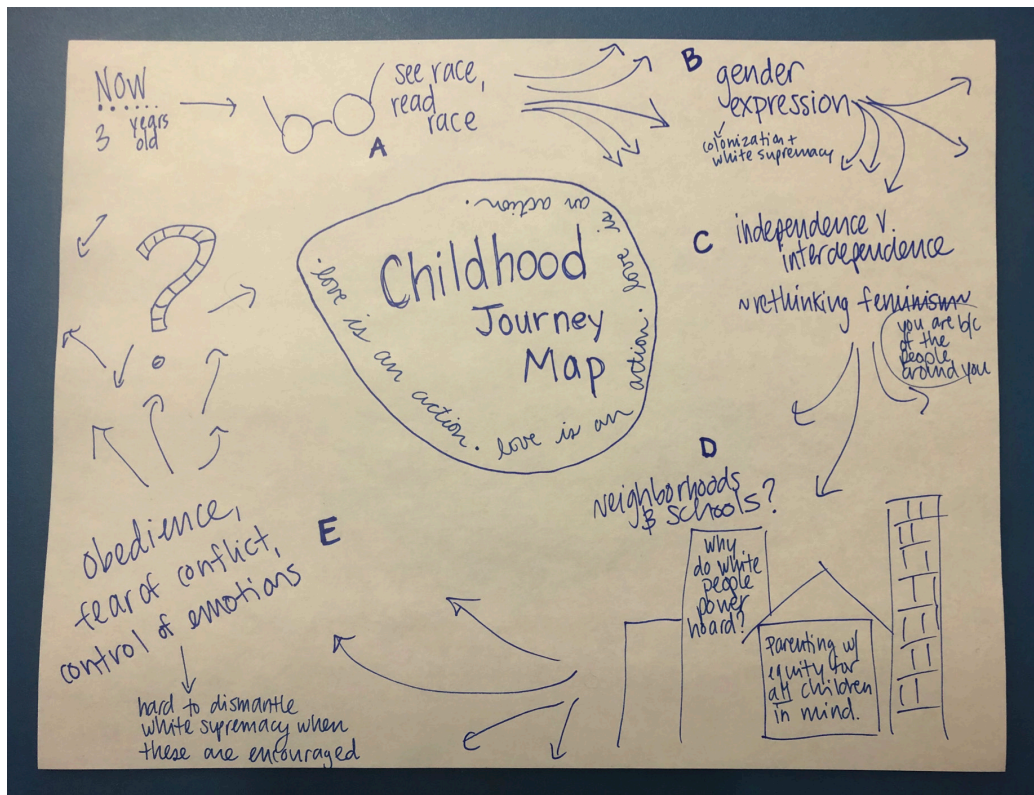 NOW
3 years
old
see race,
read
race
A
B
gender
expression
colonization +
white supremacy
C
independence v.
interdependence
~rethinking feminism~
you are b/c
of the
people
around you
Childhood
Journey
Map
love is an action. love is an action. love is an action.
D
neighborhoods
& schools?
why
do white
people
power
hoard?
Parenting w/
equity for
all children
in mind.
E
obedience,
fear of conflict,
control of emotions
hard to dismantle
white supremacy when
these are encouraged
?